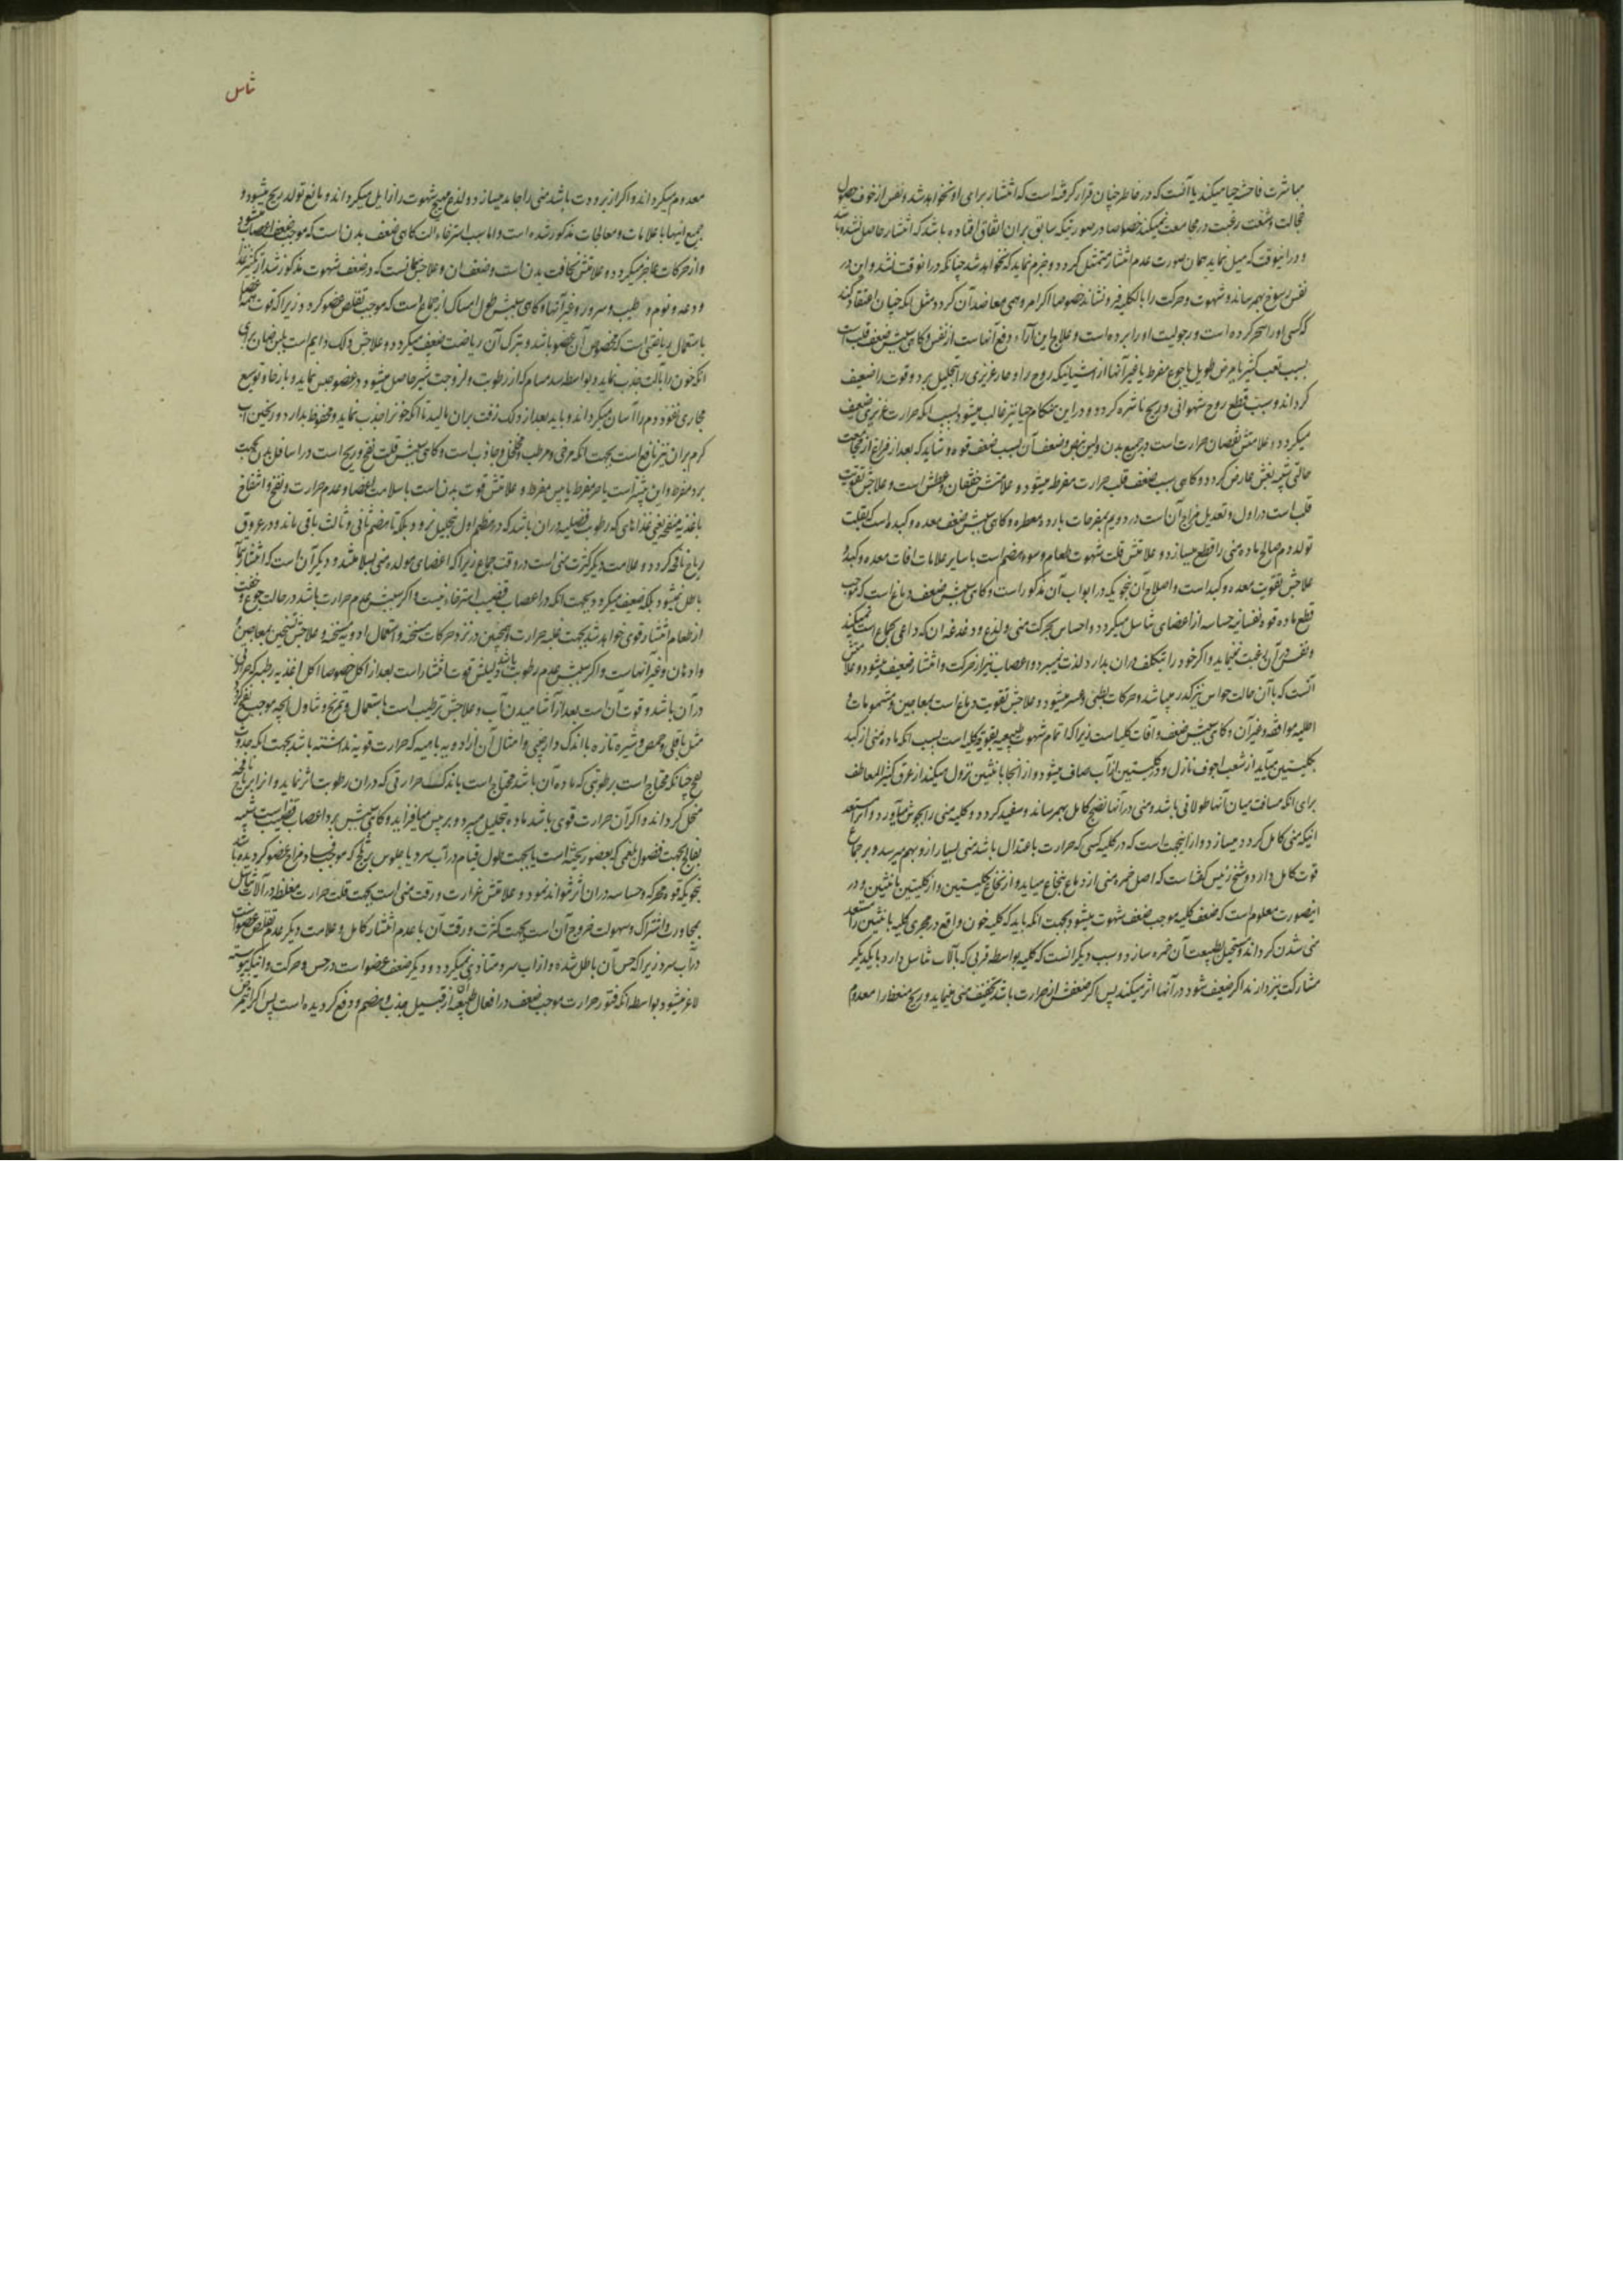 مباشرت فاحشه حیا میکند یا آنست که در خاطر چنان قرار گرفته است که انتشار برای او نخواهد شد و نفس از خوف حصول
خجالت و شنعت رغبت در مجامعت نمیکند خصوصا در صورتیکه سابق بران اتفاق افتاده باشد که انتشار حاصل نشده باشد
و در انوقت که میل نماید همان صورت عدم انتشار متمثل گردد و جزم نماید که نخواهد شد چنانکه در انوقت نشد و این در
نفس رسوخ بهم رساند و شهوت و حرکت را بالکلیه فرونشاند خصوصا اگر امر وهمی معاضد آن گردد مثل انکه چنان اعتقاد کند
که کسی او را سحر کرده است و رجولیت او را برده است و علاج این آراء دفع آنهاست از نفس و گاهی سببش ضعف قلب است
بسبب تعب کثیر یا مرض طویل یا جوع مفرط یا غیر آنها از اشیائیکه روح را و حار غریزی را بتحلیل برد و قوت را ضعیف
گرداند و سبب قطع روح شهوانی و ریح ناشره گردد و در این هنگام حیا نیز غالب میشود بسبب انکه حرارت غریزی ضعیف
میگردد و علامتش نقصان حرارت است در جمیع بدن و لین نبض و ضعف آن بسبب ضعف قوه و شاید که بعد از فراغ از مجامعت
حالتی شبیه بغشی عارض گردد و گاهی سبب ضعف قلب حرارت مفرطه میشود و علامتش خفقان و عطش است و علاجش تقویت
قلب است در اول و تعدیل مزاج آن است در دویم بمفرحات بارده معطره و گاهی سببش ضعف معده و کبد است که بقلت
تولد دم صالح ماده منی را قطع میسازد و علامتش قلت شهوت طعام و سوء هضم است با سایر علامات آفات معده و کبد و
علاجش تقویت معده و کبد است و اصلاح آن بنحویکه در ابواب آن مذکور است و گاهی سببش ضعف دماغ است که موجب
قطع ماده قوه نفسانیه حساسه از اعضای تناسل میگردد و احساس بحرکت منی و لذع و دغدغه ان که داعی بجماع است نمیکند
و نفس در آن رغبت نمینماید و اگر خود را بتکلف بران بدارد لذت نمیبرد و اعصاب نیز از حرکت و انتشار ضعیف میشود و علامتش
آنست که با آن حالت حواس نیز مکدر میباشد و حرکات بطئی و عسر میشود و علاجش تقویت دماغ است بمعاجین و مشمومات و
اطلیه موافقه و غیر آن و گاهی سببش ضعف و آفات کلیه است زیرا که اتمام شهوت طبیعیه بقوت کلیه است بسبب انکه ماده منی از کبد
بکلیتین میآید از شعب اجوف نازل و در کلیتین از آب صاف میشود و از انجا بانثیین نزول میکند از عرق کثیر المعاطف
برای انکه مسافت میان آنها طولانی باشد و منی در آنها نضج کامل بهم رساند و سفید گردد و کلیه منی را بجوش میآورد و انرا مستعد
انیکه منی کامل گردد میسازد و از اینجهت است که در کلیه کسی که حرارت باعتدال باشد منی بسیار از و بهم میرسد و بر جماع
قوت کامل دارد و شیخ رئیس گفته است که اصل خمره منی از دماغ بنخاع میآید و از نخاع بکلیتین و از کلیتین بانثیین و در
اینصورت معلوم است که ضعف کلیه موجب ضعف شهوت میشود بجهت انکه باید که کلیه خون واقع در مجری کلیه بانثیین را مستعد
منی شدن گرداند و مستحیل بطبیعت آن خمره سازد و سبب دیگر انست که کلیه بواسطه قربی که بآلات تناسل دارد با یکدیگر
مشارکت نیز دارند اگر ضعیف شود در آنها اثر میکند پس اگر ضعفش از حرارت باشد تجفیف منی مینماید و ریح منعظ را معدوم
تناسل
معدوم میگرداند و اگر از برودت باشد منی را جامد میسازد و لذع مهیج شهوت را زایل میگرداند و مانع تولد ریح میشود و
جمیع اینها با علامات و معالجات مذکور شده است و اما سبب استرخاء الت گاهی ضعف بدن است که موجب ضعف اعصاب میشود
و از حرکات عاجز میگردد و علامتش نحافت بدن است و ضعف ان و علاجش همانست که در ضعف شهوت مذکور شد از تکثیر غذا
و دعه و نوم و طیب و سرور و غیر آنها و گاهی سببش طول امساک از جماع است که موجب تقلص عضو گردد زیرا که قوت همه عضلها
باستعمال ریاضتی است که مخصوص آن عضو باشد و بترک آن ریاضت ضعیف میگردد و علاجش دلک دایم است
انکه خون را بآلت جذب نماید و بواسطه سد مسام که از رطوبت و لزوجت شیر حاصل میشود در عضو حبس نماید و بار خا و توسیع
مجاری نفوذ دم را آسان میگرداند و باید بعد از دلک زفت بران مالید تا انکه خونرا جذب نماید و محفوظ بدارد و ریختن آب
گرم بران نیز نافع است بجهت انکه مرخی و مرطب و محلل و جاذب است و گاهی سببش قلت نفخ و ریح است در اسافل بدن بجهت
برد مفرط و این بیشتر است یا حر مفرط یا یبس مفرط و علامتش قوت بدن است با سلامت اعضا و عدم حرارت و نفخ و انتفاع
باغذیه منفخه یعنی غذاهای که رطوبت فضلیه در ان باشد که در هضم اول بتحلیل نرود بلکه تا هضم ثانی و ثالث باقی ماند و در عروق
ریاح نافخه گردد و علامت دیگر کثرت منی است در وقت جماع زیرا که اعضای مولده منی بسلامتند و دیگر آن است که انتشار
باطل نمیشود بلکه ضعیف میگردد بجهت انکه در اعصاب قضیب استرخاء نیست و اگر سببش عدم حرارت باشد در حالت جوع و خفت
از طعام انتشار قوی خواهد شد بجهت غلبه حرارت و همچنین در نزد حرکات مسخنه و استعمال ادویه مسخنه و علاجش تسخین بمعاجین و
و ادهان و غیر آنهاست و اگر سببش عدم رطوبت باشد دلیلش قوت انتشار است بعد از اکل خصوصا اکل اغذیه رطبه که حرارتی
در آن باشد و قوت آن است بعد از آشامیدن آب و علاجش ترطیب است باستعمال و تمریخ و تناول انچه موجب نفخ گردد
مثل باقلی و حمص و شیر تازه با اندک دارچینی و امثال آن از ادویه باهیه که حرارت قویه نداشته باشد بجهت انکه حدوث
نفخ چنانکه محتاج است برطوبتی که ماده آن باشد محتاج است باندک حرارتی که در ان رطوبت تاثیر نماید و انرا بریح نافخه
منحل گرداند و اگر آن حرارت قوی باشد ماده بتحلیل میبرد و بر یبس میافزاید و گاهی سببش برد اعصاب قضیب است شبیه
بفالج بجهت فضول بلغمی که بعضو ریخته است یا بجهت طول قیام در آب سرد یا جلوس بر یخ که موجب فساد مزاج عضو گردیده باشد
بنحویکه قوه محرکه و حساسه در ان اثر نتواند نمود و علامتش غزارت و رقت منی است بجهت قلت حرارت مغلظه در آلات تناسل
بمجاورت و اشتراک و سهولت خروج آن است بجهت کثرت و رقت آن با عدم انتشار کامل و علامت دیگر عدم تقلص عضو است
در آب سرد زیرا که حس آن باطل شده و از آب سرد متاذی نمیگردد و دیگر ضعف عضو است در حس و حرکت و انیکه پیوسته
لاغر میشود بواسطه انکه فتور حرارت موجب ضعف در افعال طبیعیه از قبیل جذب و هضم و دفع گردیده است پس اگر این مرض